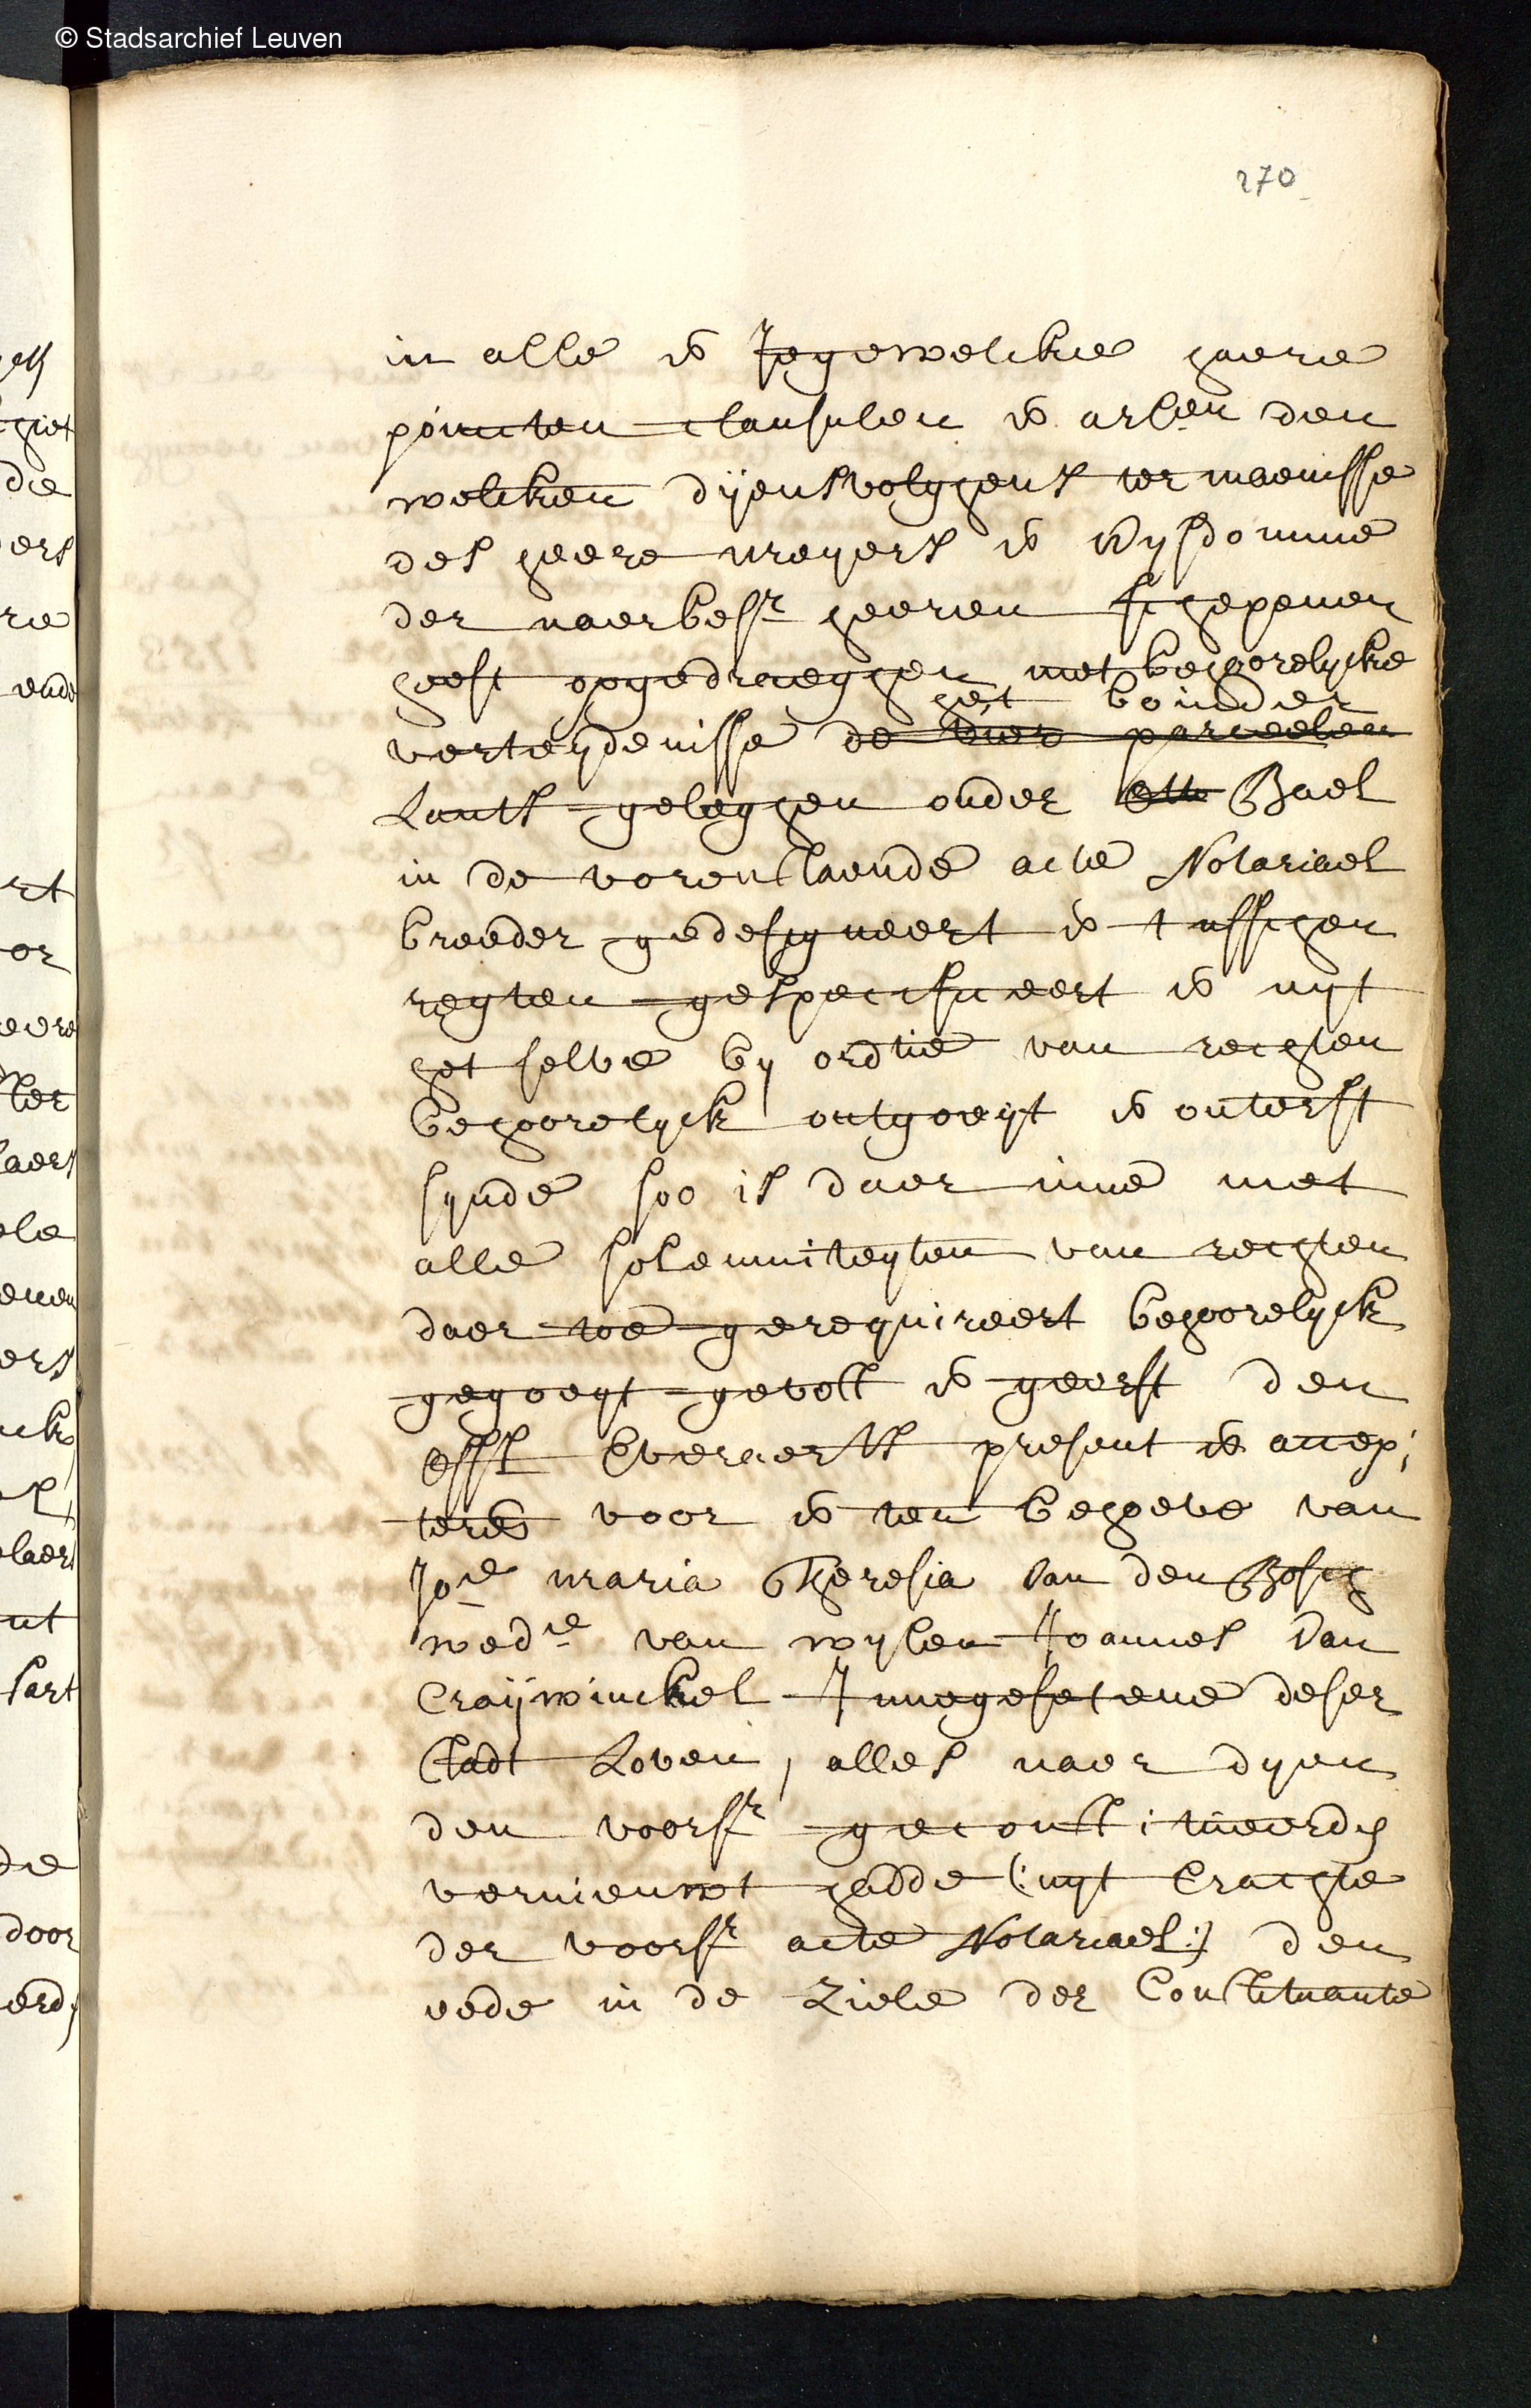 © Stadsarchief Leuven
270
in alle & Jegewelcke haere
poincten clausulen & arlen den
welcken dijensvolghens ter maenisse
des heere meyers & Wysdomme
der naerbesr heeren schepenen
heeft opgedraeghen met behoorelycke
het boinder
verteydenisse de vier parceelen
Lants geleghen onder Bael
in de vorenstaende acte Notariael
breeder gedesigneert & tusschen
regten gespecificeert & uyt
het selve by ordtie van rechten
behoorelyck ontgoeyt & onterft
synde soo is daer inne met
alle solemniteyten van rechten
daer toe gerequireert behoorelyck
gegoeyt gevest & geerft den
Everaerts present & accep:
teren voor & ten behoeve van
Joe maria Theresia Van den Bosch
wede van wylen Joannes Van
Craijwinckel Innegesetene deser
stadt Loven, alles naer dyen
den voorsr geconstitueerden
vernieuwt hadde (: uyt Crachte
der voorsr acte Notariael :) den
eede in de Ziele der Constituante